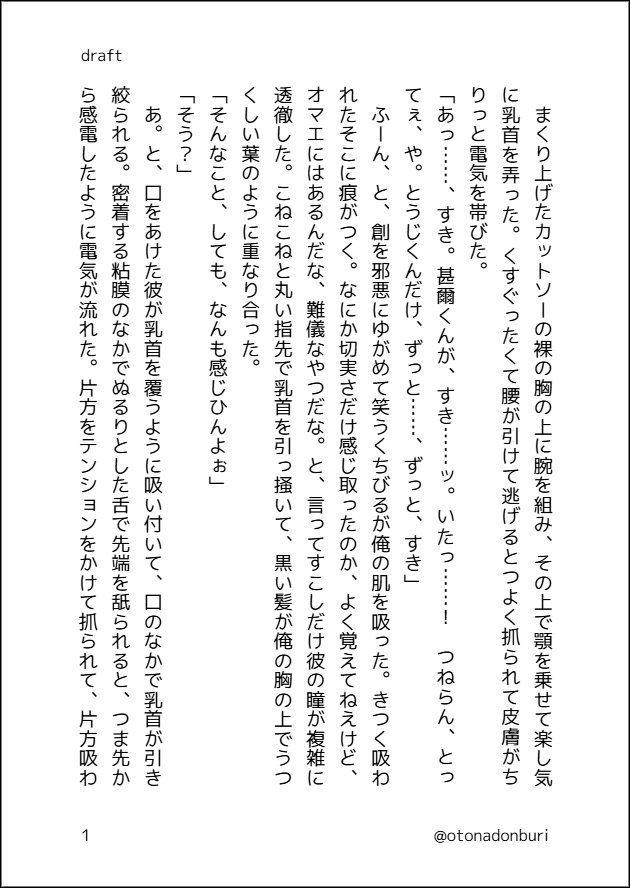 draft
　まくり上げたカットソーの裸の胸の上に腕を組み、その上で顎を乗せて楽し気
に乳首を弄った。くすぐったくて腰が引けて逃げるとつよく抓られて皮膚がち
りっと電気を帯びた。
「あっ……、すき。甚爾くんが、すき……ッ。いたっ……！　つねらん、とっ
てぇ、や。とうじくんだけ、ずっと……、ずっと、すき」
　ふーん、と、創を邪悪にゆがめて笑うくちびるが俺の肌を吸った。きつく吸わ
れたそこに痕がつく。なにか切実さだけ感じ取ったのか、よく覚えてねえけど、
オマエにはあるんだな、難儀なやつだな。と、言ってすこしだけ彼の瞳が複雑に
透徹した。こねこねと丸い指先で乳首を引っ掻いて、黒い髪が俺の胸の上でうつ
くしい葉のように重なり合った。
「そんなこと、しても、なんも感じひんよぉ」
「そう？」
　あ。と、口をあけた彼が乳首を覆うように吸い付いて、口のなかで乳首が引き
絞られる。密着する粘膜のなかでぬるりとした舌で先端を舐られると、つま先か
ら感電したように電気が流れた。片方をテンションをかけて抓られて、片方吸わ
1
@otonadonburi